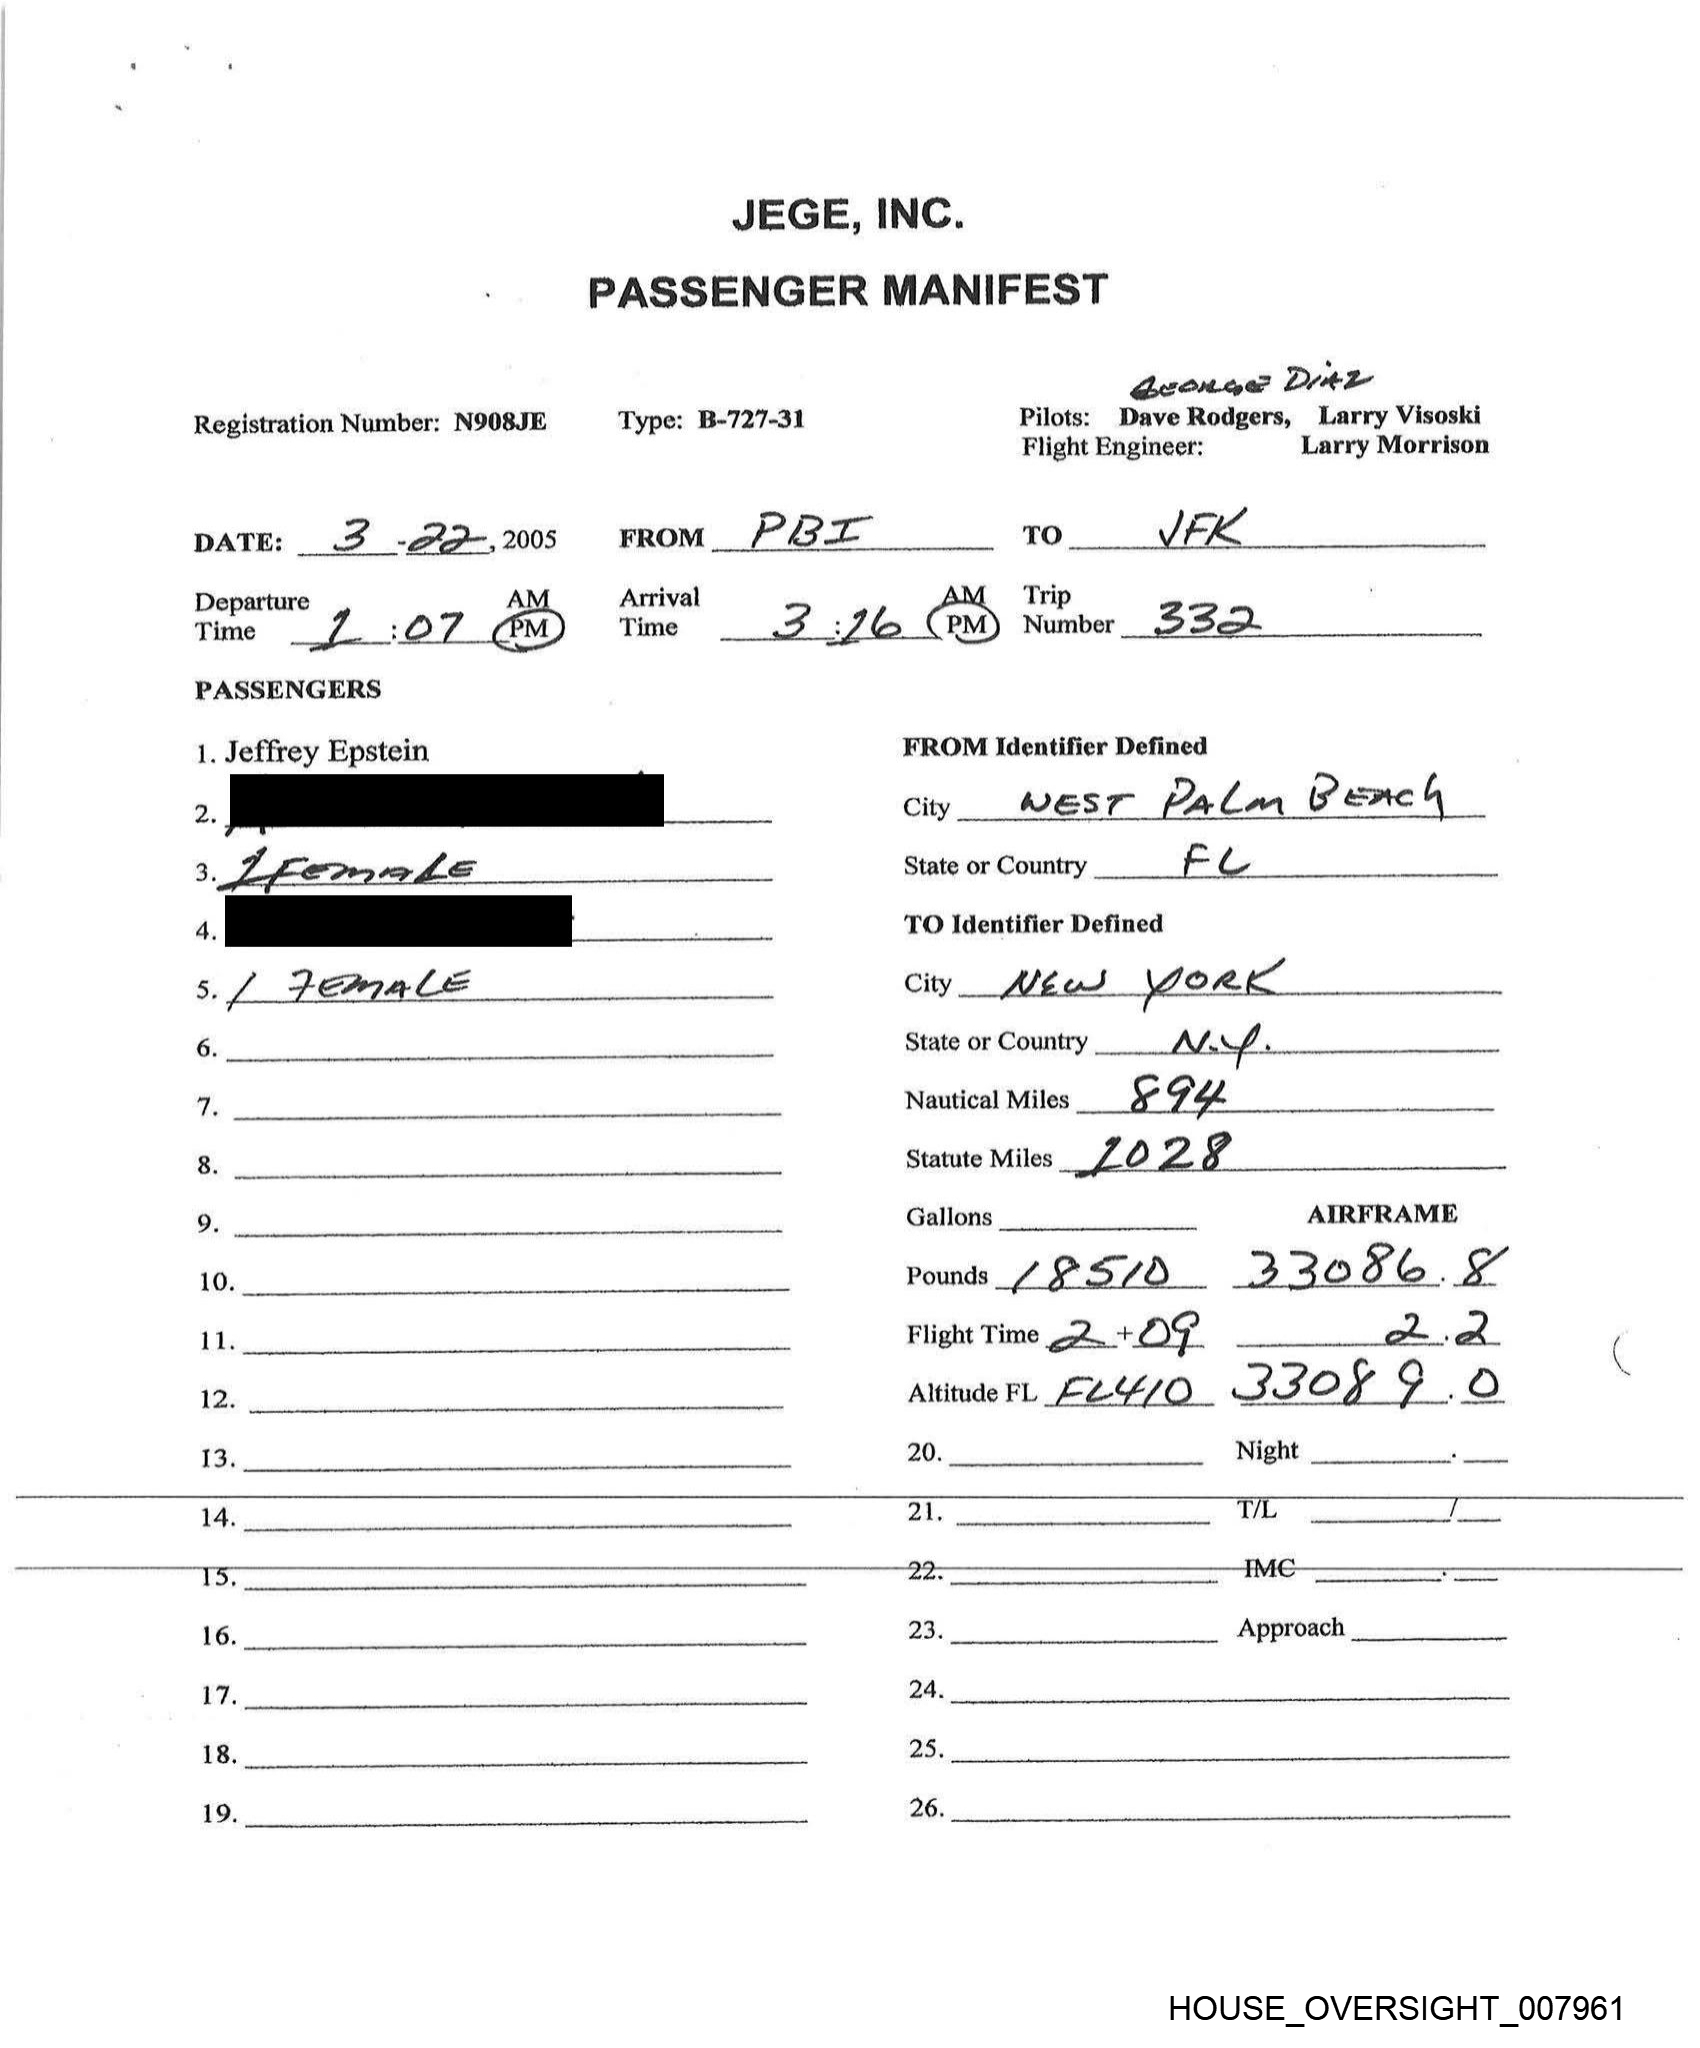 JEGE, INC.
PASSENGER MANIFEST
GEORGE DIAZ
Registration Number: N908JE Type: B-727-31 Pilots: Dave Rodgers, Larry Visoski
Flight Engineer: Larry Morrison
DATE: 3-22, 2005 FROM PBI TO JFK
Departure Time 1:07 AM PM Arrival Time 3:16 AM PM Trip Number 332
PASSENGERS
1. Jeffrey Epstein FROM Identifier Defined
2. City WEST PALM BEACH
3. 1 FEMALE State or Country FL
4. TO Identifier Defined
5. 1 FEMALE City NEW YORK
6. State or Country N.Y.
7. Nautical Miles 894
8. Statute Miles 1028
9. Gallons AIRFRAME
10. Pounds 18510 33086.8
11. Flight Time 2+09 2.2
12. Altitude FL FL410 33089.0
13. 20. Night .
14. 21. T/L /
15. 22. IMC .
16. 23. Approach
17. 24.
18. 25.
19. 26.
HOUSE_OVERSIGHT_007961